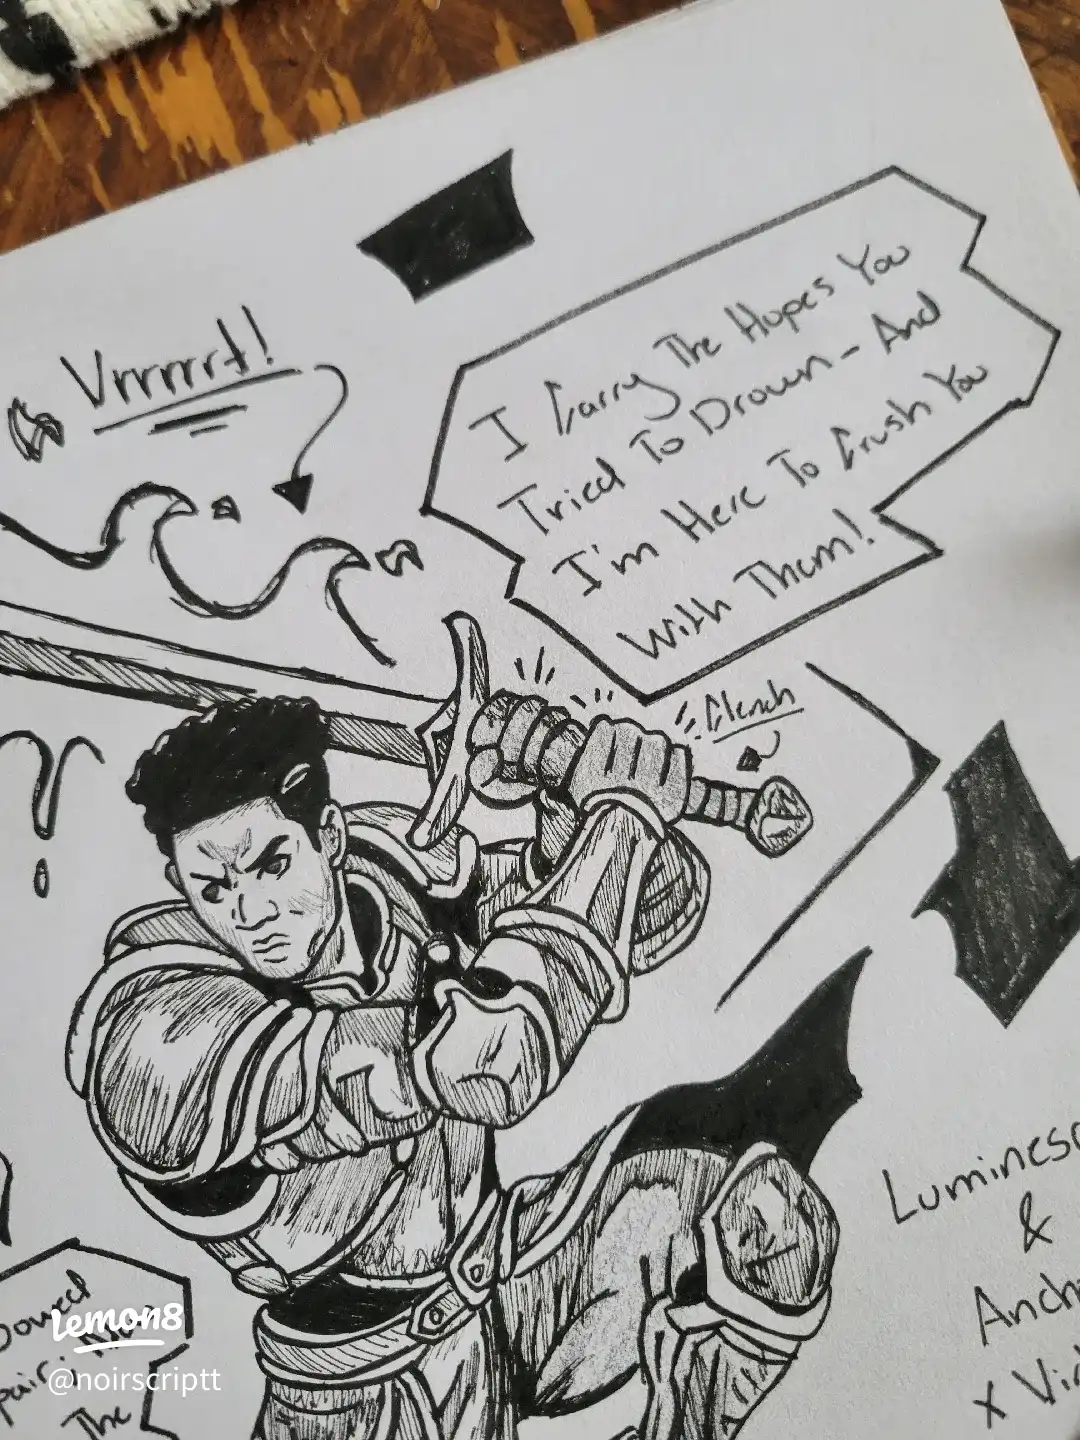 Vrrrrrt!
I Carry The Hopes You
Tried To Drown - And
I'm Here To Crush You
With Them!
Clench
Luminesc
&
Anch
x Vi
The
lemon8
@noirscriptt